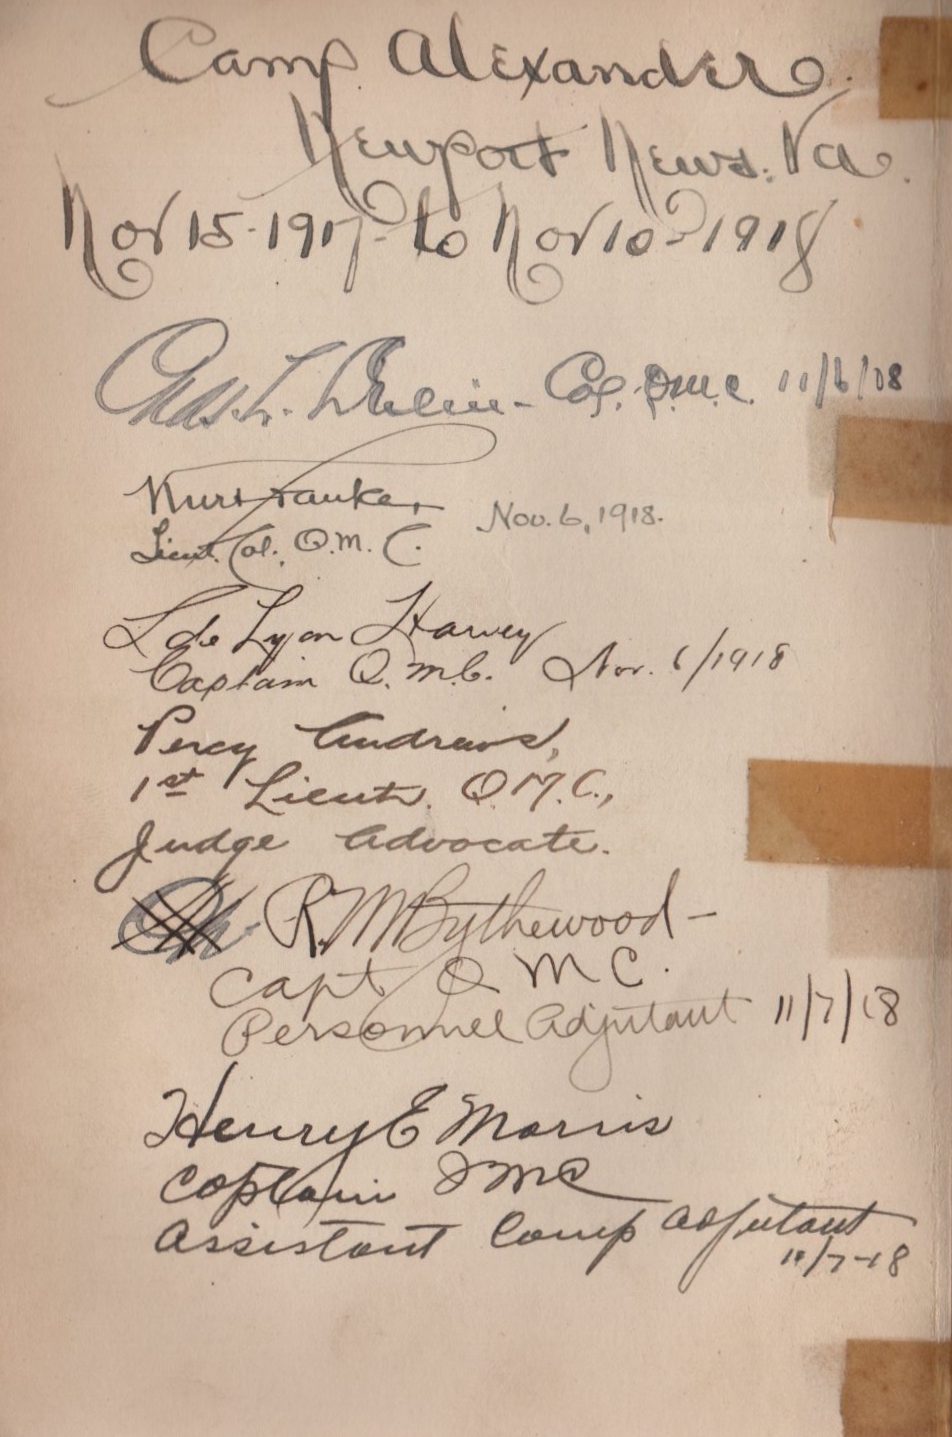 Camp Alexander.
Newport News. Va.
Nov 15-1917- to Nov 10-1918
Chas. L. - Col. Q.M.C. 11/6/18
Kurt
Lieut. Col. Q.M.C. Nov. 6, 1918.
L de Lyon Harvey
Captain Q.M.C. Nov. 6/1918
Percy Andrews,
1st Lieut. Q.M.C.,
Judge Advocate.
R. M Bythewood-
Capt Q M C.
Personnel Adjutant 11/7/18
Henry E Morris
Captain QMC
Assistant Camp Adjutant
11/7-18